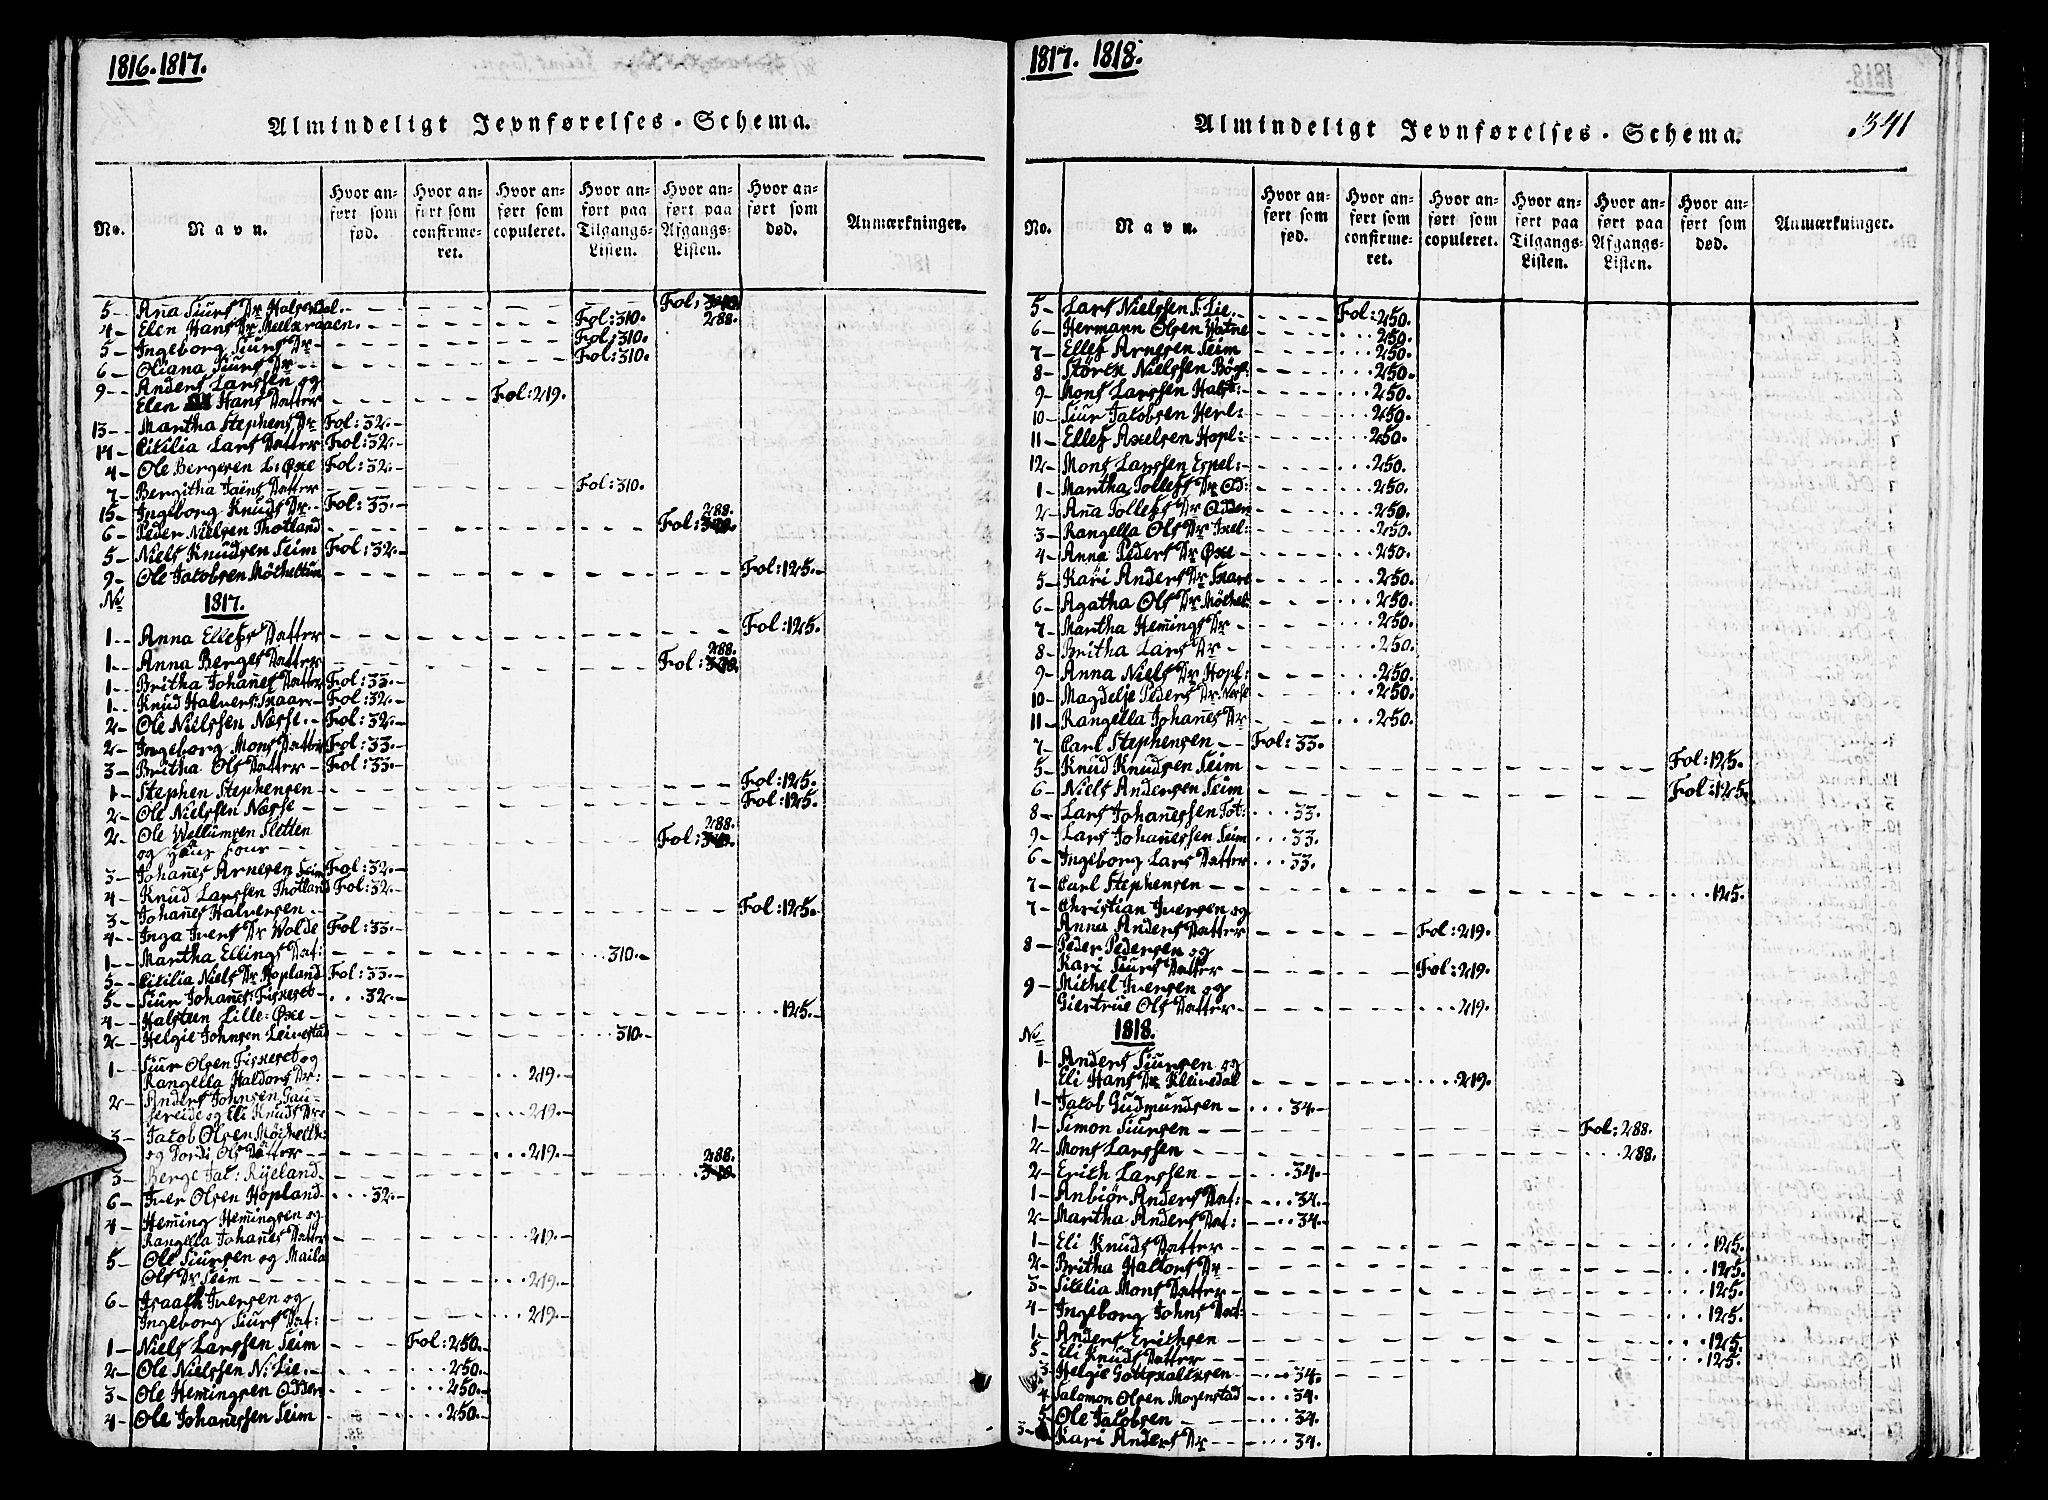 1816. 1817.
Almindeligt Jevnførelses-Schema.
No. Navn. Hvor anført som fød. Hvor anført som confirmeret. Hvor anført som copuleret. Hvor anført paa Tilgangs-Listen. Hvor anført paa Afgangs-Listen. Hvor anført som død. Anmærkninger.
5 Fol:
4 Elen Hans Dr Fol: 310. 288.
5 Ingeborg Siurs Dr Fol: 310.
6 Oliana Siurs Dr Fol: 310.
9 Anders Larssen og
Elen Hans Datter Fol: 219.
13 Martha Stephens Dr Fol: 32.
14 Citilia Lars Datter Fol: 32.
4 Ole Bergesen L: Øxe Fol: 32.
7 Bergitha Datter Fol: 310.
15 Ingeborg Knuds Dr Fol: 33.
6 Peder Nielsen Thotland Fol: 288.
5 Niels Knudsen Seim Fol: 32.
9 Ole Jacobsen Fol: 125.
No 1817.
1 Anna Ellefs Datter Fol: 125.
1 Anna Berges Datter Fol: 288.
1 Britha Johanes Datter Fol: 33.
1 Knud Halvers: Skaar Fol: 32.
2 Ole Nielssen Næsse Fol: 32.
2 Ingeborg Mons Datter Fol: 33.
3 Britha Ols Datter Fol: 33.
1 Stephen Stephensen Fol: 125.
2 Ole Nielssen Næsse Fol: 125.
2 Ole Sletten Fol: 288.
og
3 Johanes Arnesen Seim Fol: 32.
4 Knud Larssen Thotland Fol: 32.
3 Johanes Halversen Fol: 125.
4 Inga Ivers Dr Wolde Fol: 33.
1 Martha Ellings Dat: 310.
5 Citilia Niels Dr Hopland Fol: 33.
5 Siur Johanes: Fixeset 32.
4 Halsteen Lille: Øxe 125.
2 Helgie Johnsen 310.
1 Siur Olsen Fixeset og
Rangella Haldors Dr: 219.
2 Anders Johnsen
og Eli Knuds Dr 219.
3 Jacob Olsen
og Dordi Ols Datter 219.
3 Berge Jac: Ryeland 288.
6 Iver Olsen Hopland 32.
4 Heming Hemingsen og
Rangella Johanes Datter 219.
5 Ole Siursen og Maila
Ols Dr Seim 219.
6 Isaach Iversen og
Ingeborg Siurs Dat: 219.
1 Niels Larssen Seim Fol: 250.
2 Ole Nielssen N: Lie 250.
3 Ole Hemingsen Odden 250.
4 Ole Johanessen Seim 250.
1817. 1818.
341
Almindeligt Jevnførelses-Schema.
No. Navn. Hvor anført som fød. Hvor anført som confirmeret. Hvor anført som copuleret. Hvor anført paa Tilgangs-Listen. Hvor anført paa Afgangs-Listen. Hvor anført som død. Anmærkninger.
5 Lars Nielssen S: Lie Fol: 250.
6 Hermann Olsen Watne 250.
7 Ellef Arnesen Seim 250.
8 Størck Nielssen 250.
9 Mons Larssen 250.
10 Siur Jacobsen Herl: 250.
11 Ellef Axelsen Hopl: 250.
12 Mons Larssen Espel: 250.
1 Martha Tollefs Dr Od: 250.
2 Ana Tollefs Dr Odden 250.
3 Rangella Ols Dr 250.
4 Anna Peders Dr Øxe 250.
5 Kari Anders Dr Skare 250.
6 Agatha Ols Dr 250.
7 Martha Hemings Dr 250.
8 Britha Lars Dr 250.
9 Anna Niels Dr Hopl: 250.
10 Magdelje Peders Dr Næsse 250.
11 Rangella Johanes Dr 250.
7 Carl Stephensen Fol: 33.
5 Knud Knudsen Seim Fol: 125.
6 Niels Andersen Seim Fol: 125.
8 Lars Johanessen Tot: 33.
9 Lars Johanessen Seim 33.
6 Ingeborg Lars Datter 33.
7 Carl Stephensen 125.
7 Christian Iversen og
Anna Anders Datter Fol: 219.
8 Peder Pedersen og
Kari Siurs Datter Fol: 219.
9 Michel Iversen og
Giertrue Ols Datter 219.
No 1818.
1 Anders Siursen og
Eli Hans Dr Kleivedal 219.
1 Jacob Gudmundsen 34.
1 Simon Siursen Fol: 288.
2 Mons Larssen 288.
2 Erich Larssen 34.
1 Anbiør Anders Dat: 34.
2 Martha Anders Dat: 34.
1 Eli Knuds Datter 125.
2 Britha Haldors Dr 125.
3 Sicilia Mons Datter 125.
4 Ingeborg Johns Dat: 125.
1 Anders Erichsen 125.
5 Eli Knuds Datter 125.
3 Helgie Gottskalksen 34.
4 Salomon Olsen Mogenstad 34.
5 Ole Jacobsen 34.
3 Kari Anders Dr 34.